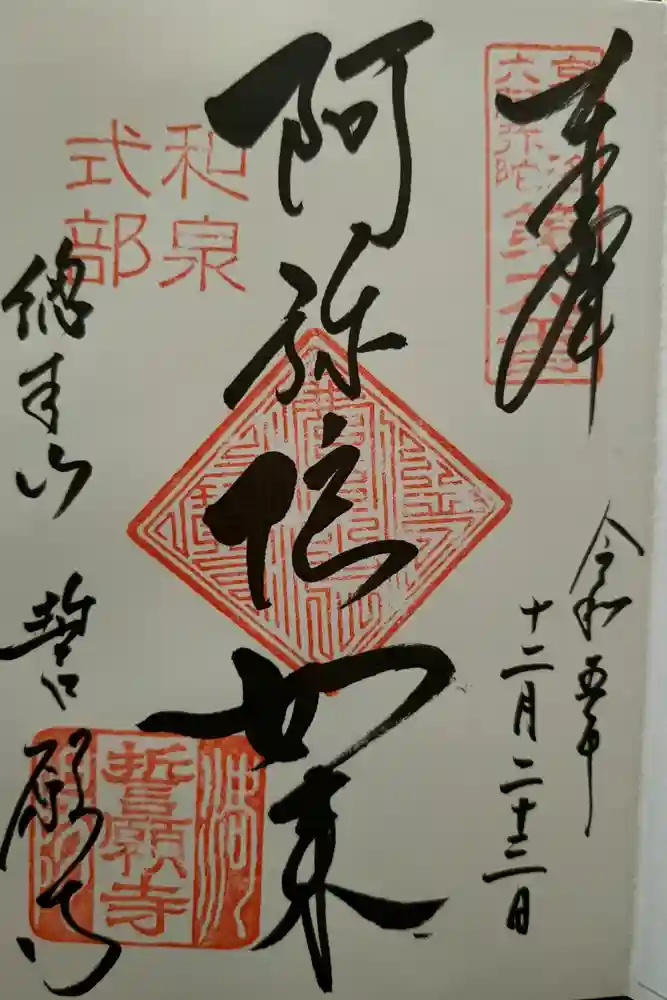 奉拝
六阿弥陀
第六番
令和五年
十二月二十三日
阿弥陀如来
和泉
式部
總本山 誓願寺
誓願寺